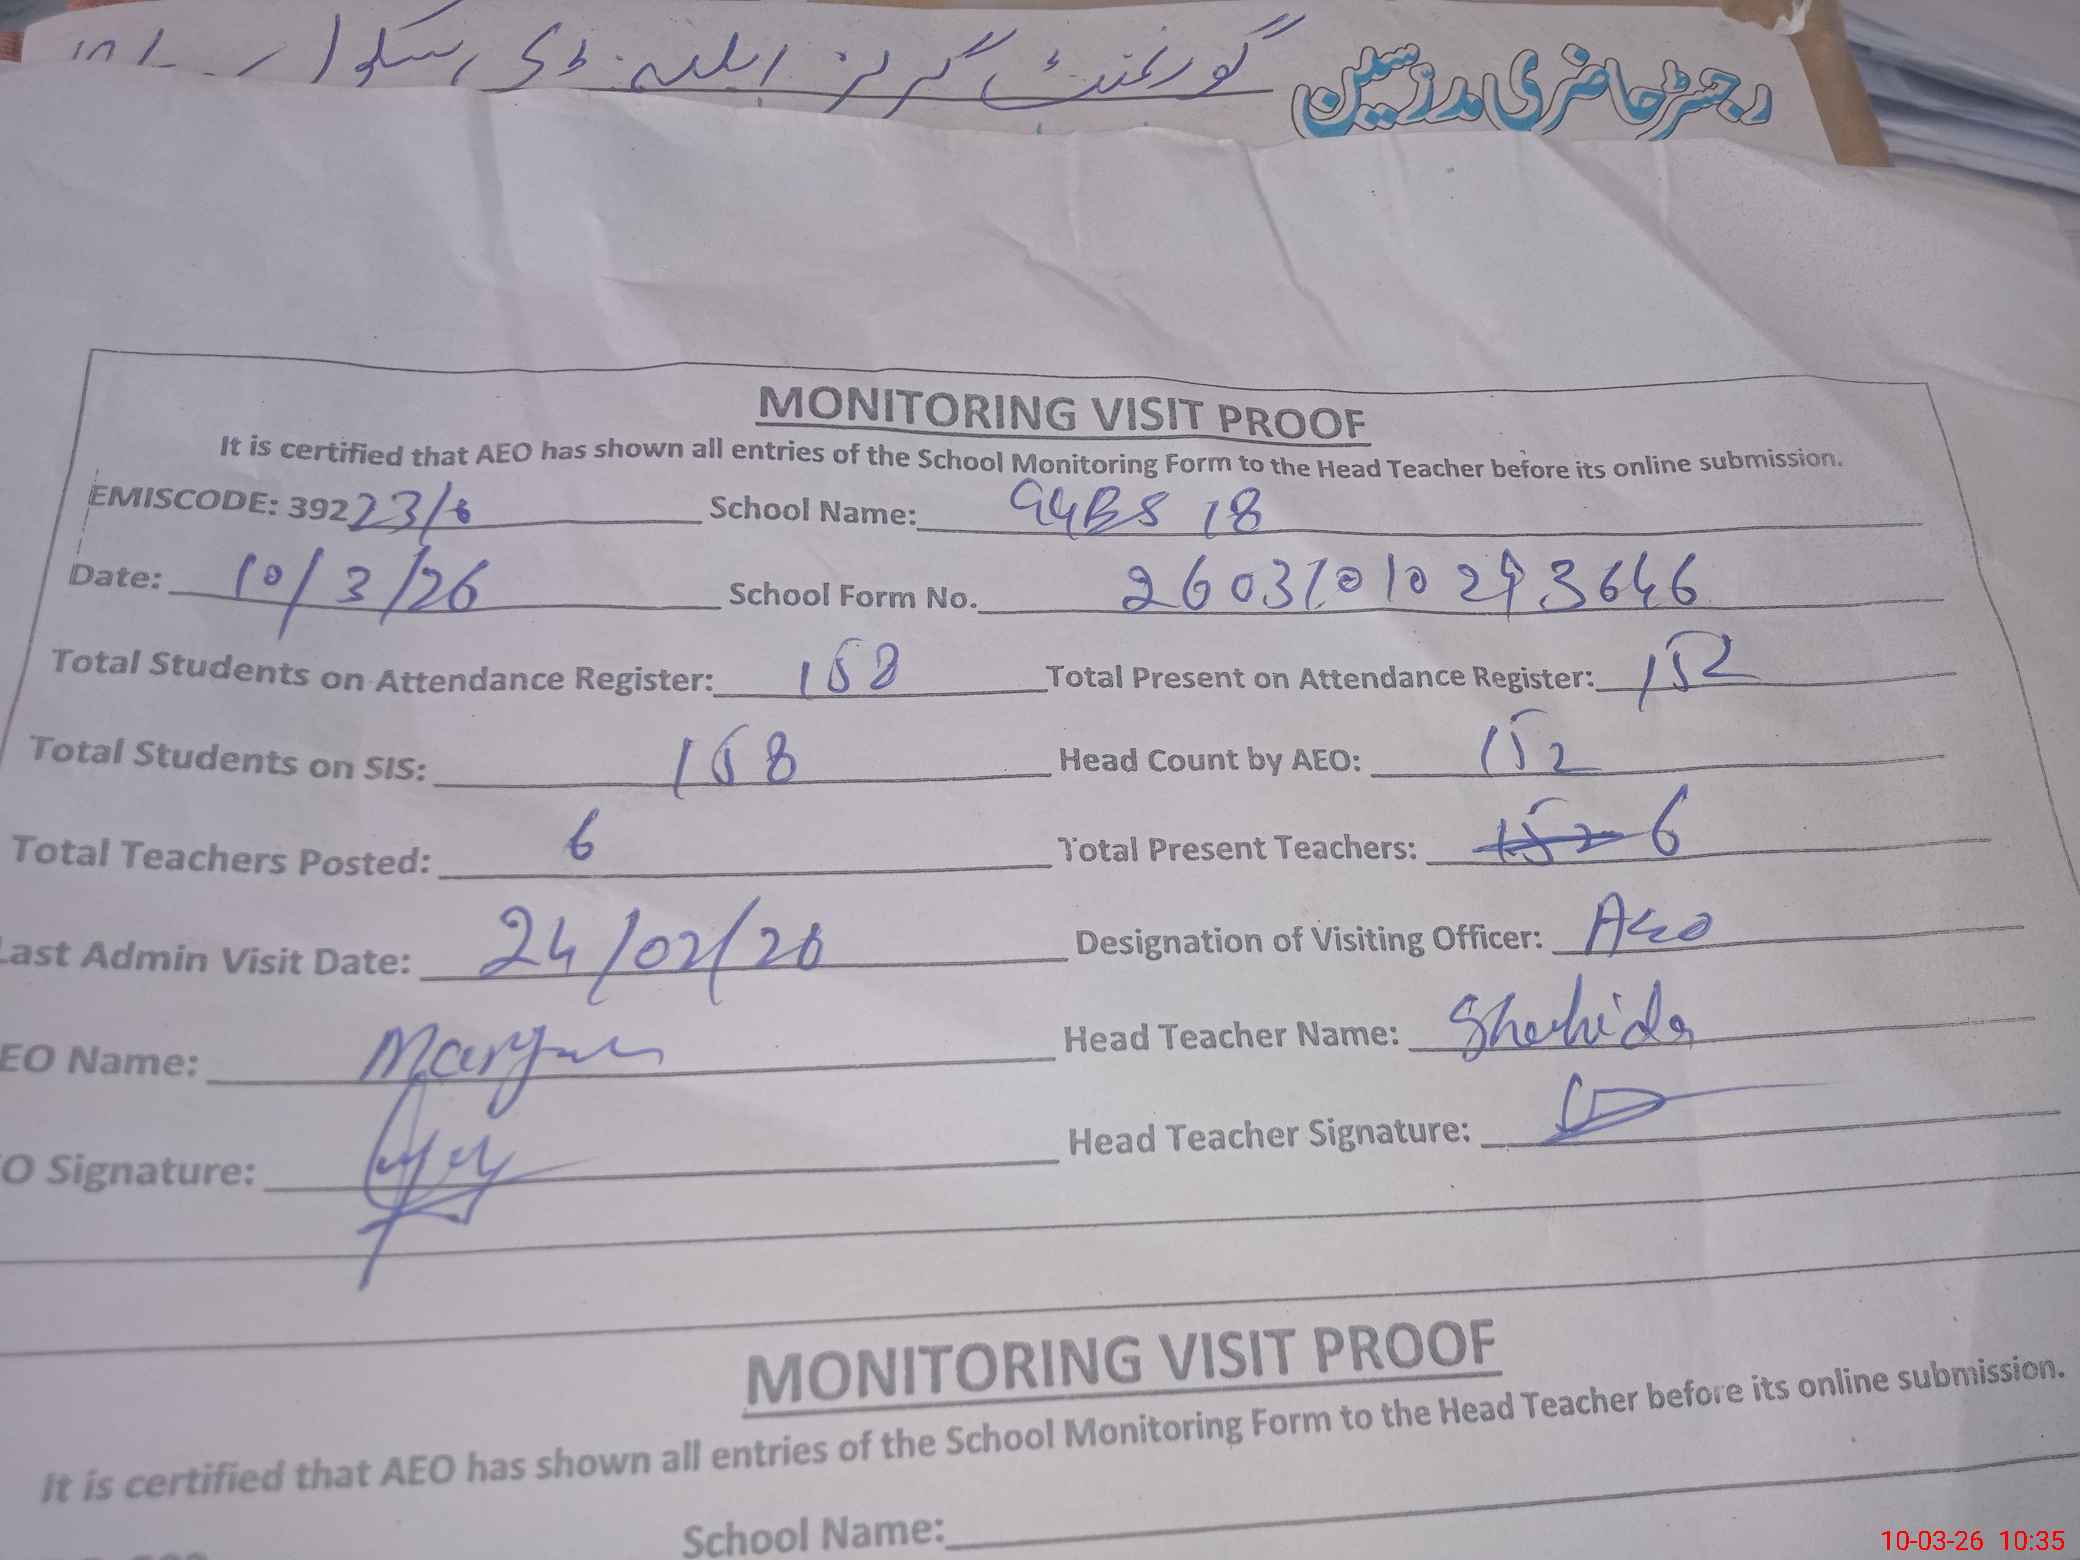 رجسٹر حاضری مدرسین گورنمنٹ گرلز ایلیمنٹری سکول
MONITORING VISIT PROOF
It is certified that AEO has shown all entries of the School Monitoring Form to the Head Teacher before its online submission.
EMISCODE: 392 School Name: GGES 18
Date: 10/3/26 School Form No.
Total Students on Attendance Register: 158 Total Present on Attendance Register: 152
Total Students on SIS: 158 Head Count by AEO: 152
Total Teachers Posted: 6 Total Present Teachers: 6
Last Admin Visit Date: 24/02/26 Designation of Visiting Officer: AEO
EO Name: Maryam Head Teacher Name: Shahida
O Signature: Head Teacher Signature:
MONITORING VISIT PROOF
It is certified that AEO has shown all entries of the School Monitoring Form to the Head Teacher before its online submission.
School Name:
10-03-26 10:35